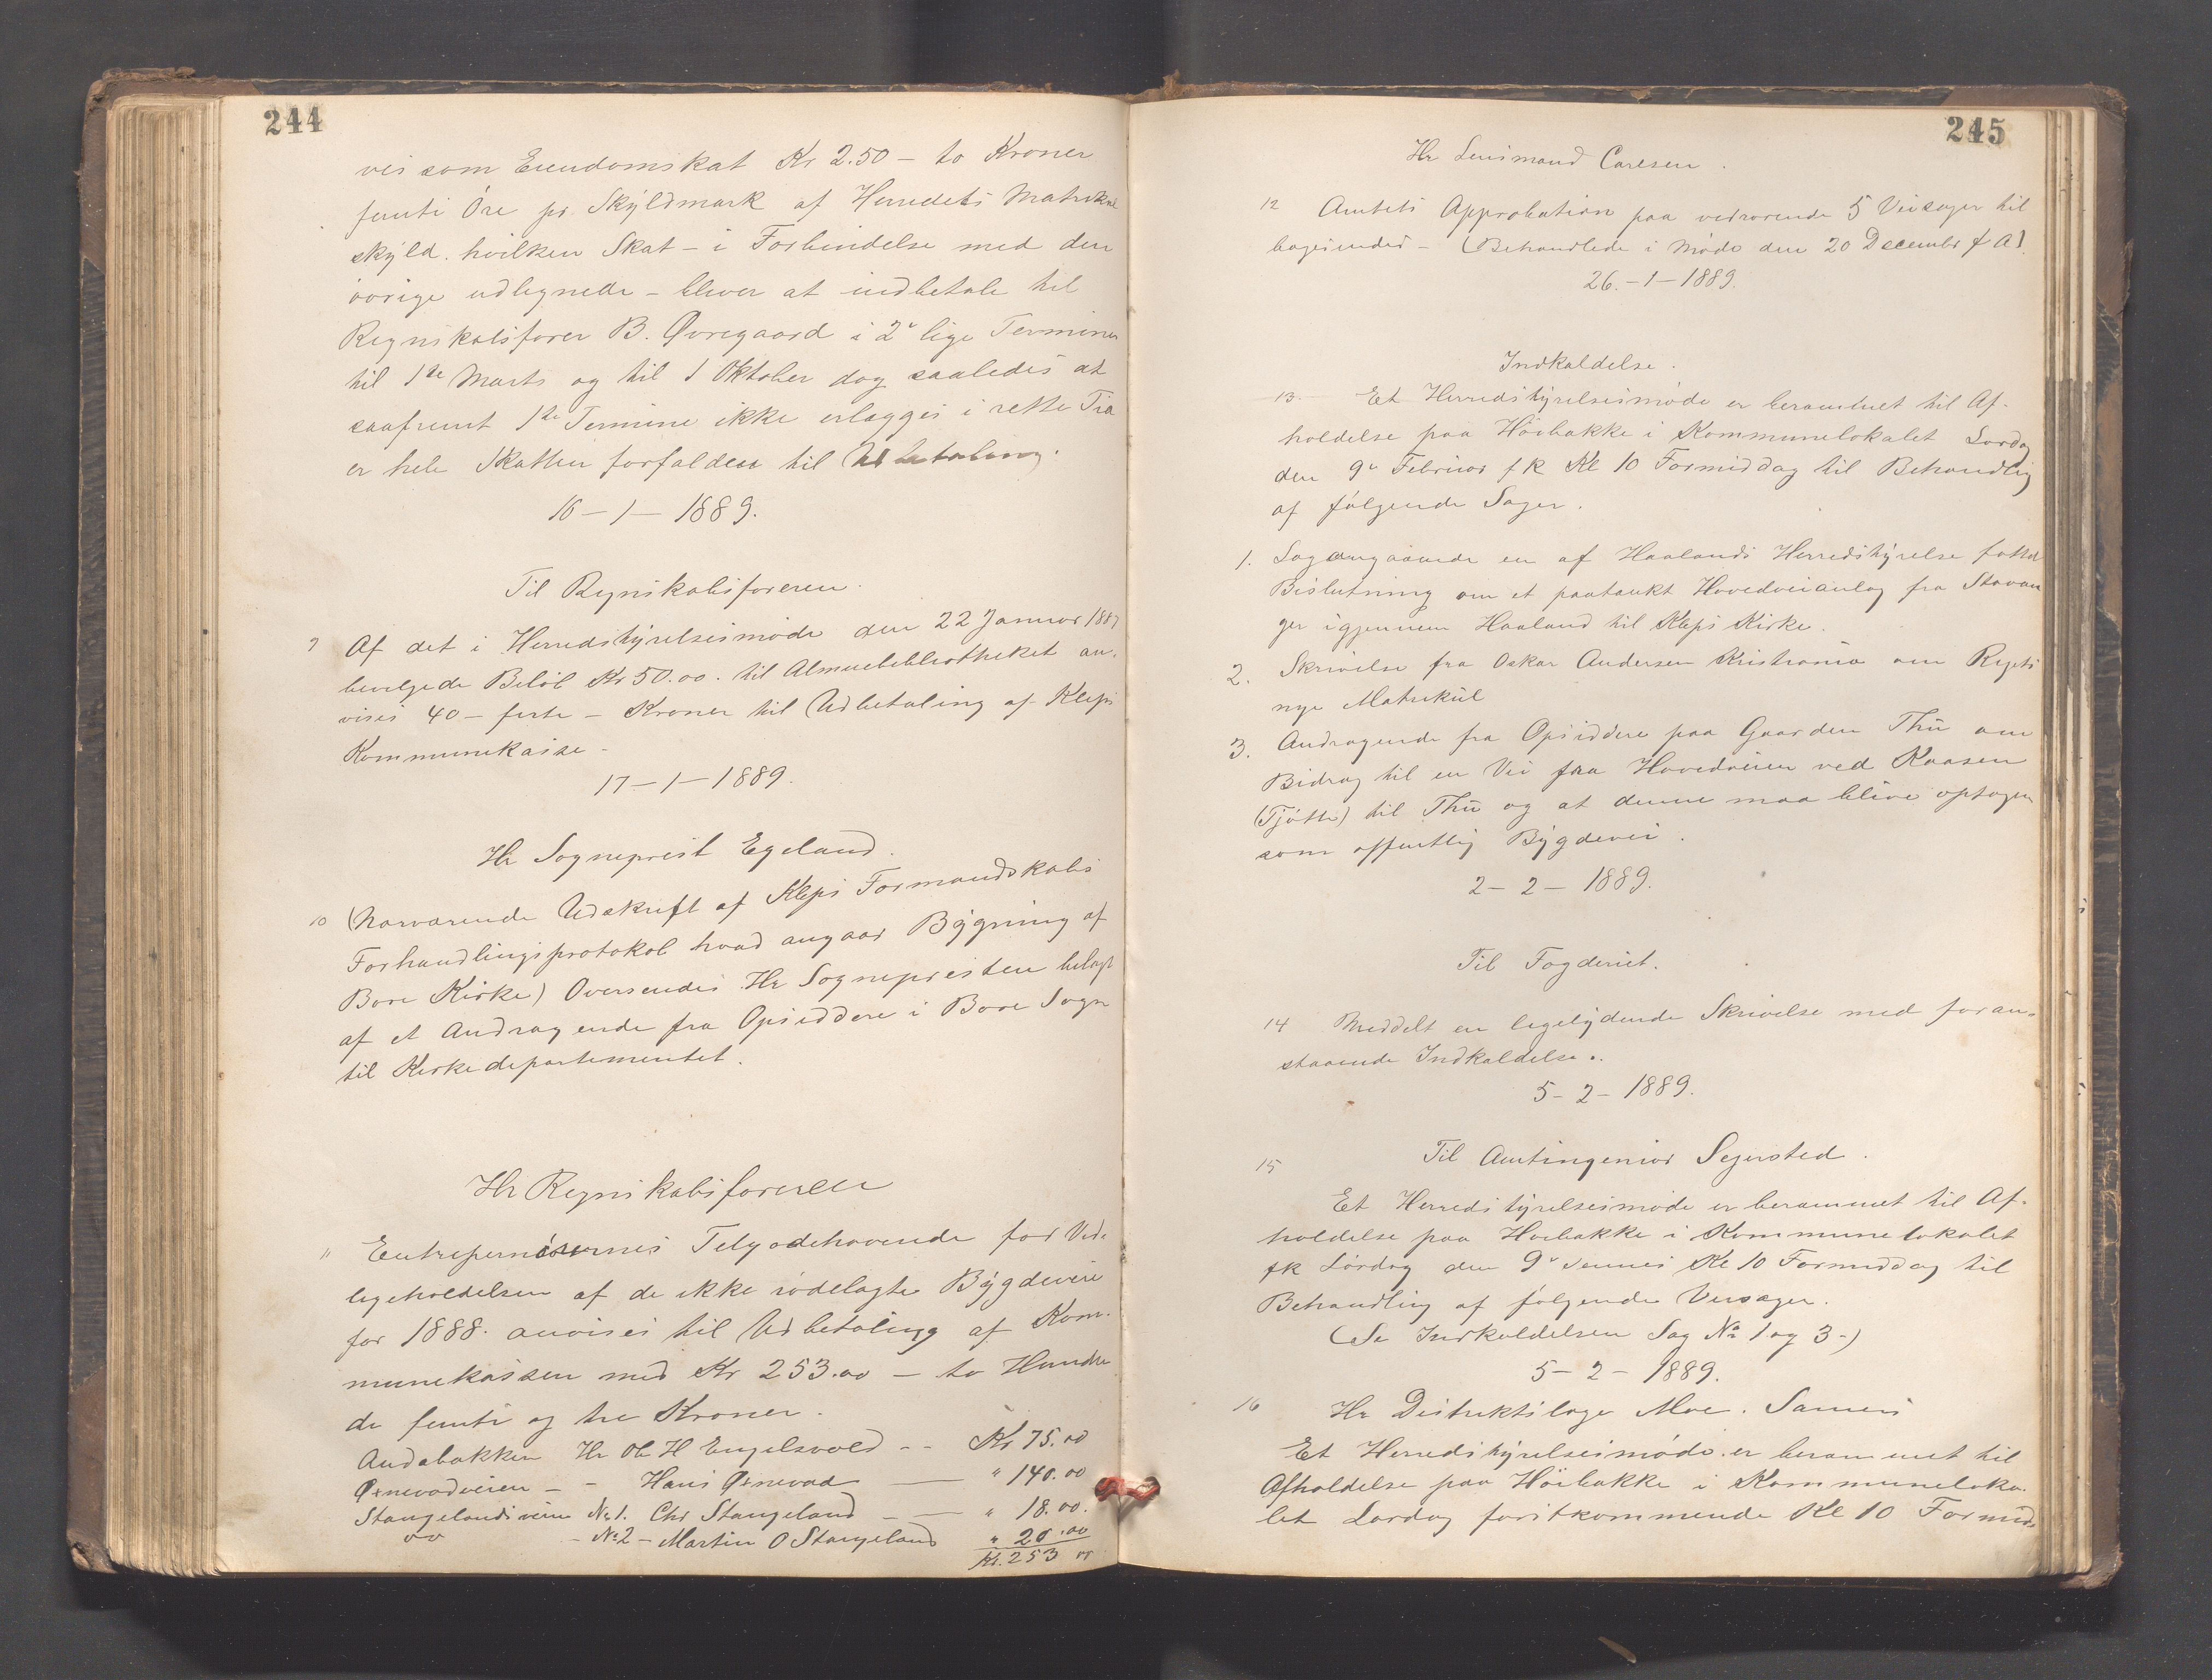 244
vis som Eiendomskat Kr 2.50 – to Kroner
femti Öre pr. Skyldmark af Herredets Matrikul
skyld. hvilken Skat – i Forbindelse med den
övrige udlignede – bliver at indbetale til
Regnskabsforer B. Øvregaard i 2de lige Terminer
til 1ste Marts og til 1 Oktober dog saaledes at
saafremt 1ste Termine ikke erlægges i rette Tid
er hele Skatten forfalden til Udbetaling.
16 – 1 – 1889.
Til Regnskabsforeren.
9 Af det i Herredstyrelsesmöde den 22 Januar 1887
bevilgede Belöb Kr 50.00. til Almuebibliotheket an-
vises 40 – förti – Kroner til Udbetaling af Kleps
Kommunekasse –
17 – 1 – 1889.
Hr Sogneprest Egeland.
10 (Nærværende Udskrift af Kleps Formandskabs
Forhandlingsprotokol hvad angaar Bygning af
Bore Kirke) Oversendes Hr Sognepresten bilagt
af et Andragende fra Opsiddere i Bore Sogn
til Kirkedepartementet.
Hr Regnskabsföreren
11 Entreprenörernes Tilgodehavende for Ved-
ligeholdelsen af de ikke rodelagte Bygdeveie
for 1888. anvises til Udbetaling af Kom-
munekassen med Kr 253.00 – to Hundre
de femti og tre Kroner.
Andabakken Hr Ole H Engelsvold – – Kr 75.00
Øxnevadveien – – Hans Øxnevad — " 140.00
Stangelandsveien No 1. Chr Stangeland – — " 18.00.
do – No 2 – Martin O Stangeland " 20.00
Kr. 253 00
245
Hr Lensmand Carlsen.
12 Amtets Approbation paa vedrørende 5 Veisager til
bagesendes – (Behandlede i Möde den 20 Decembr f A).
26. – 1 – 1889.
Indkaldelse.
13. Et Herredstyrelsesmöde er berammet til Af-
holdelse paa Höibakke i Kommunelokalet Lördag
den 9de Februar f k Kl 10 Formiddag til Behandlig
af fölgende Sager.
1. Sag angaaende en af Haalands Herredstyrelse fattet
Beslutning om et paatænkt Hovedveianlæg fra Stavan
ger igjennem Haaland til Kleps Kirke.
2. Skrivelse fra Oskar Andersen Kristiania om Rigets
nye Matrikül
3. Andragende fra Opsiddere paa Gaarden Thü om
Bidrag til en Vei fra Hovedveien ved Kaasen
(Tjötte) til Thü og at denne maa blive optagen
som offentlig Bygdevei.
2 – 2 – 1889.
Til Fogderiet.
14 Meddelt en ligelydende Skrivelse med foran-
staaende Indkaldelse.
5 – 2 – 1889.
15 Til Amtingeniör Sejersted.
Et Herredstyrelsesmöde er berammet til Af-
holdelse paa Hoibakke i Kommunelokalet
fk Lördag den 9de dennes Kl 10 Formiddag til
Behandling af fölgende Veisager.
(Se Indkaldelsen Sag No 1 og 3 –)
5 – 2 – 1889.
16 Hr Distriktslæge Moe. Sannes
Et Herredstyrelsesmöde er berammet til
Afholdelse paa Höibakke i Kommuneloka-
let Lordag forstkommende Kl 10 Formid